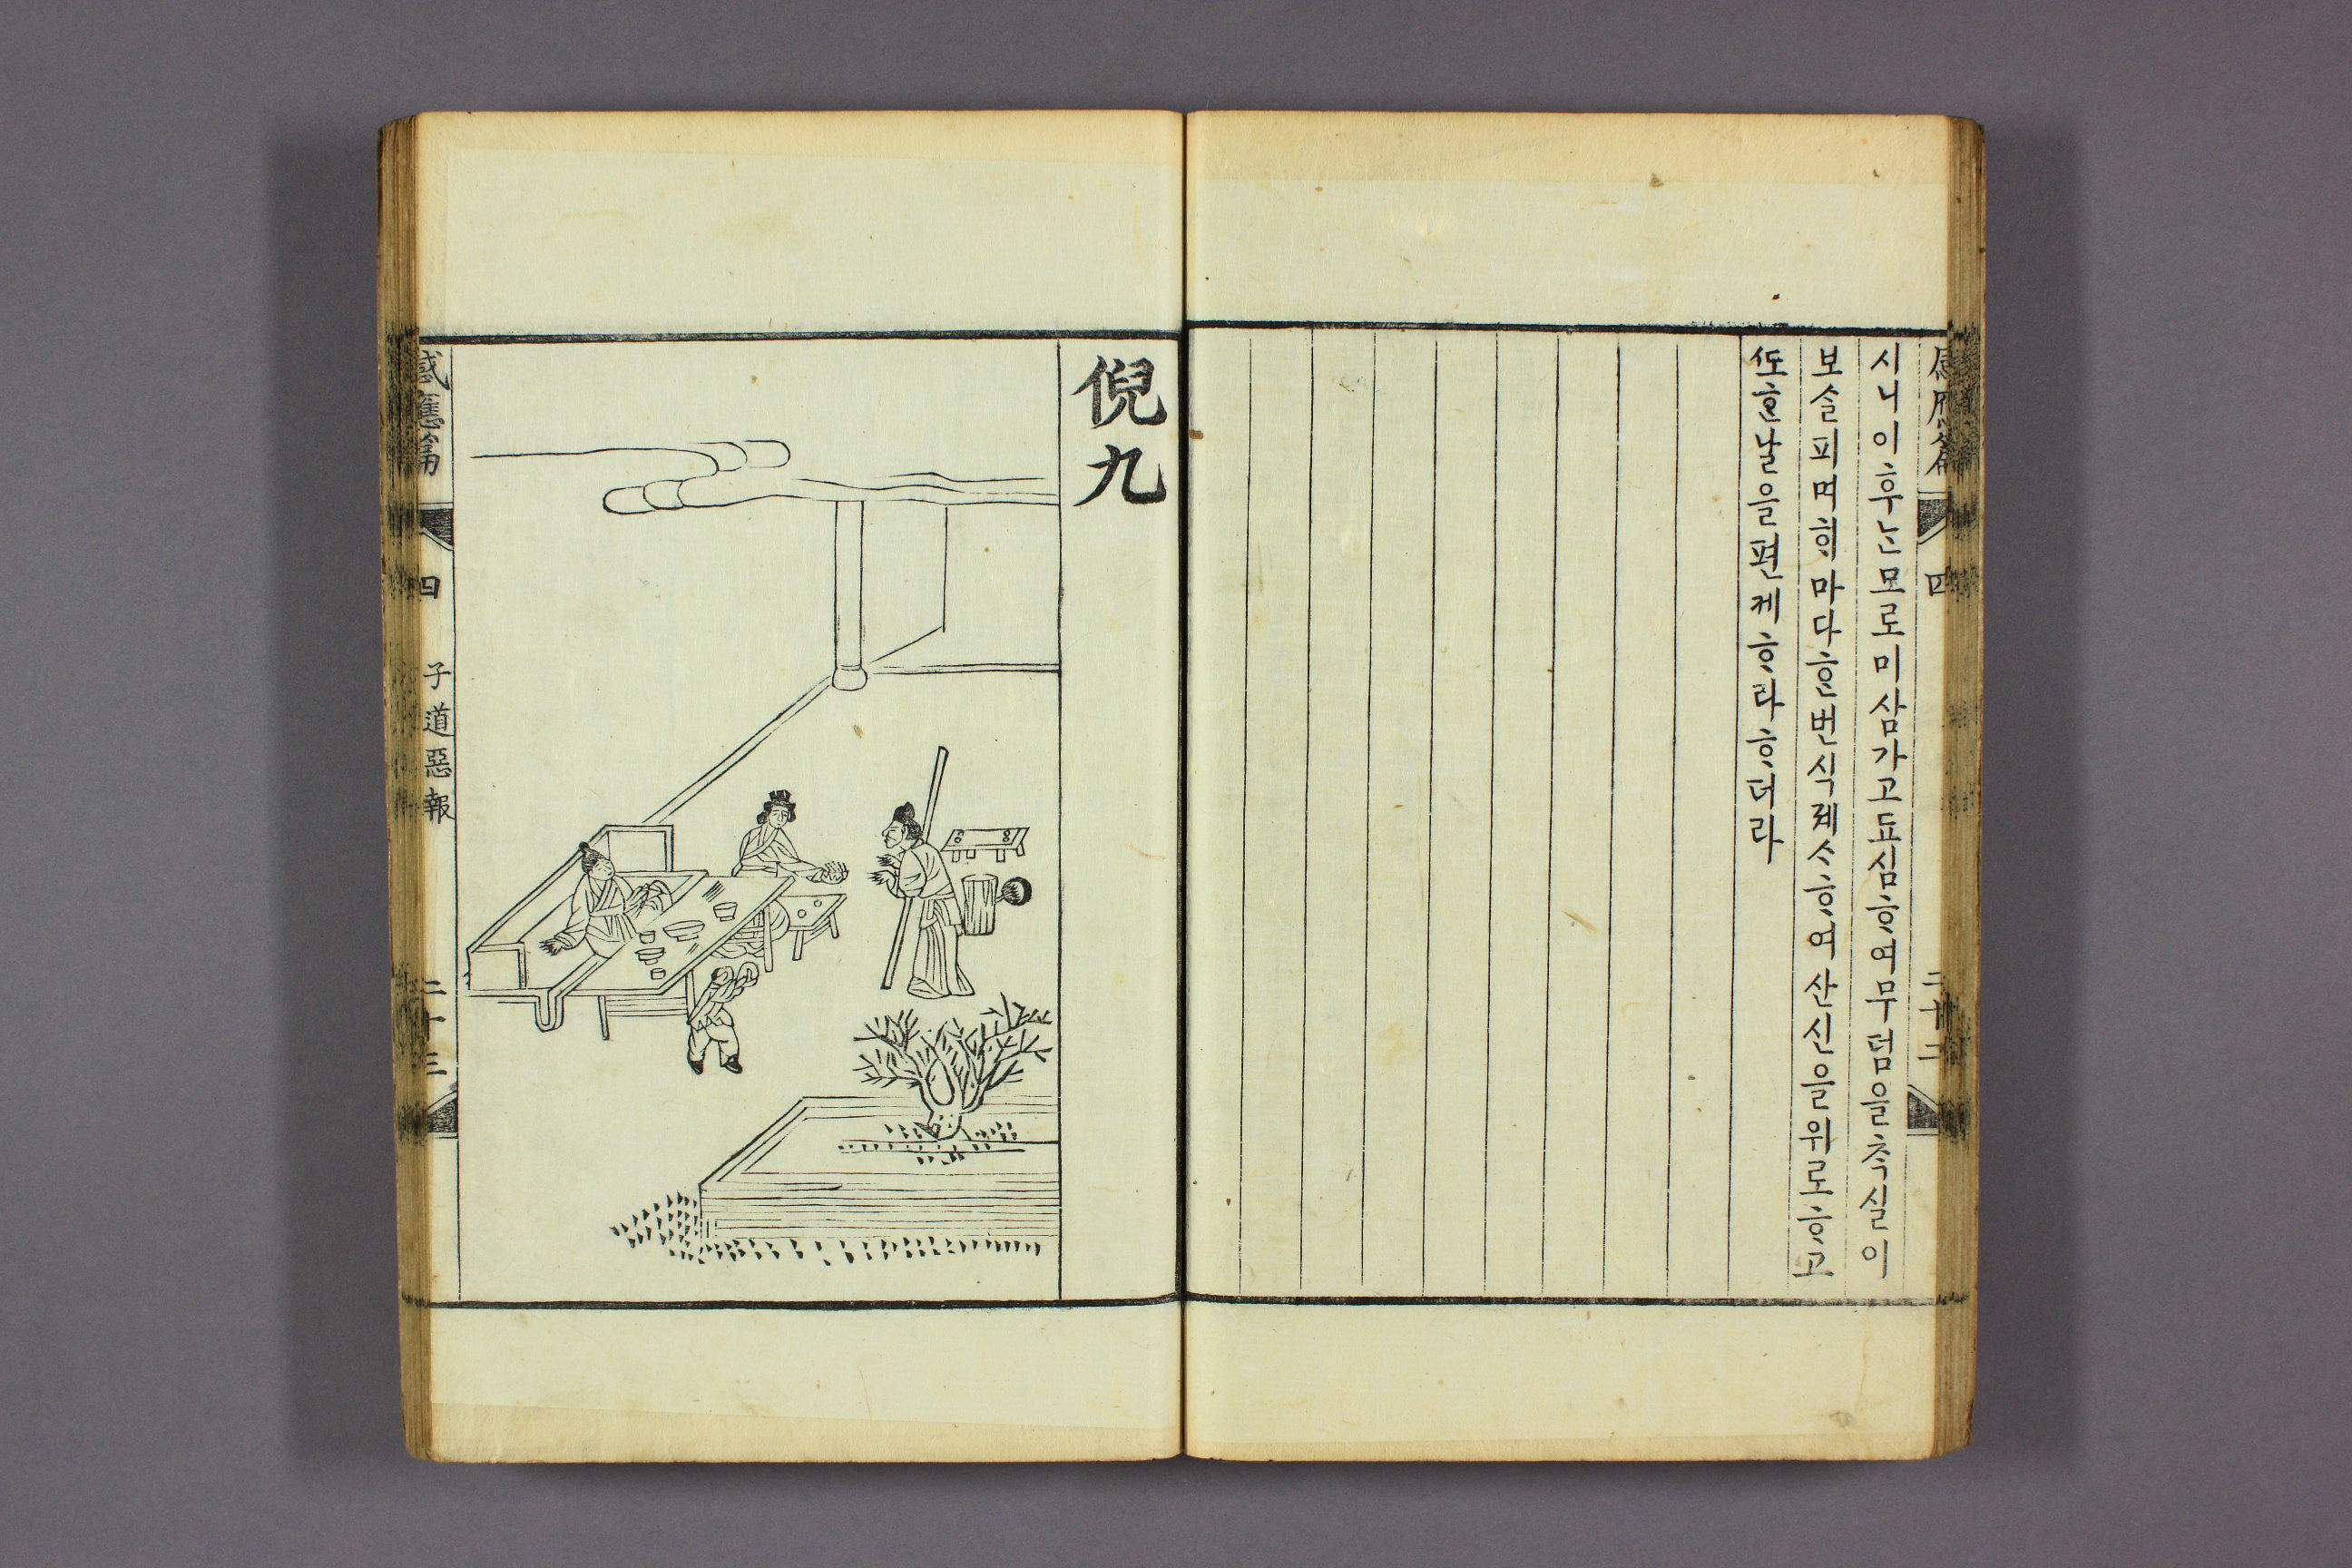 感應篇 四 二十二
시니이후ᄂᆞᆫ모로미삼가고됴심ᄒᆞ여무덤을ᄎᆞᆨ실이
보솔피며ᄒᆡ마다ᄒᆞᆫ번식졔ᄉᆞᄒᆞ여산신을위로ᄒᆞ고
ᄯᅩᄒᆞᆫ날을편케ᄒᆞ라ᄒᆞ더라
倪九
感應篇 四 子道惡報 二十三